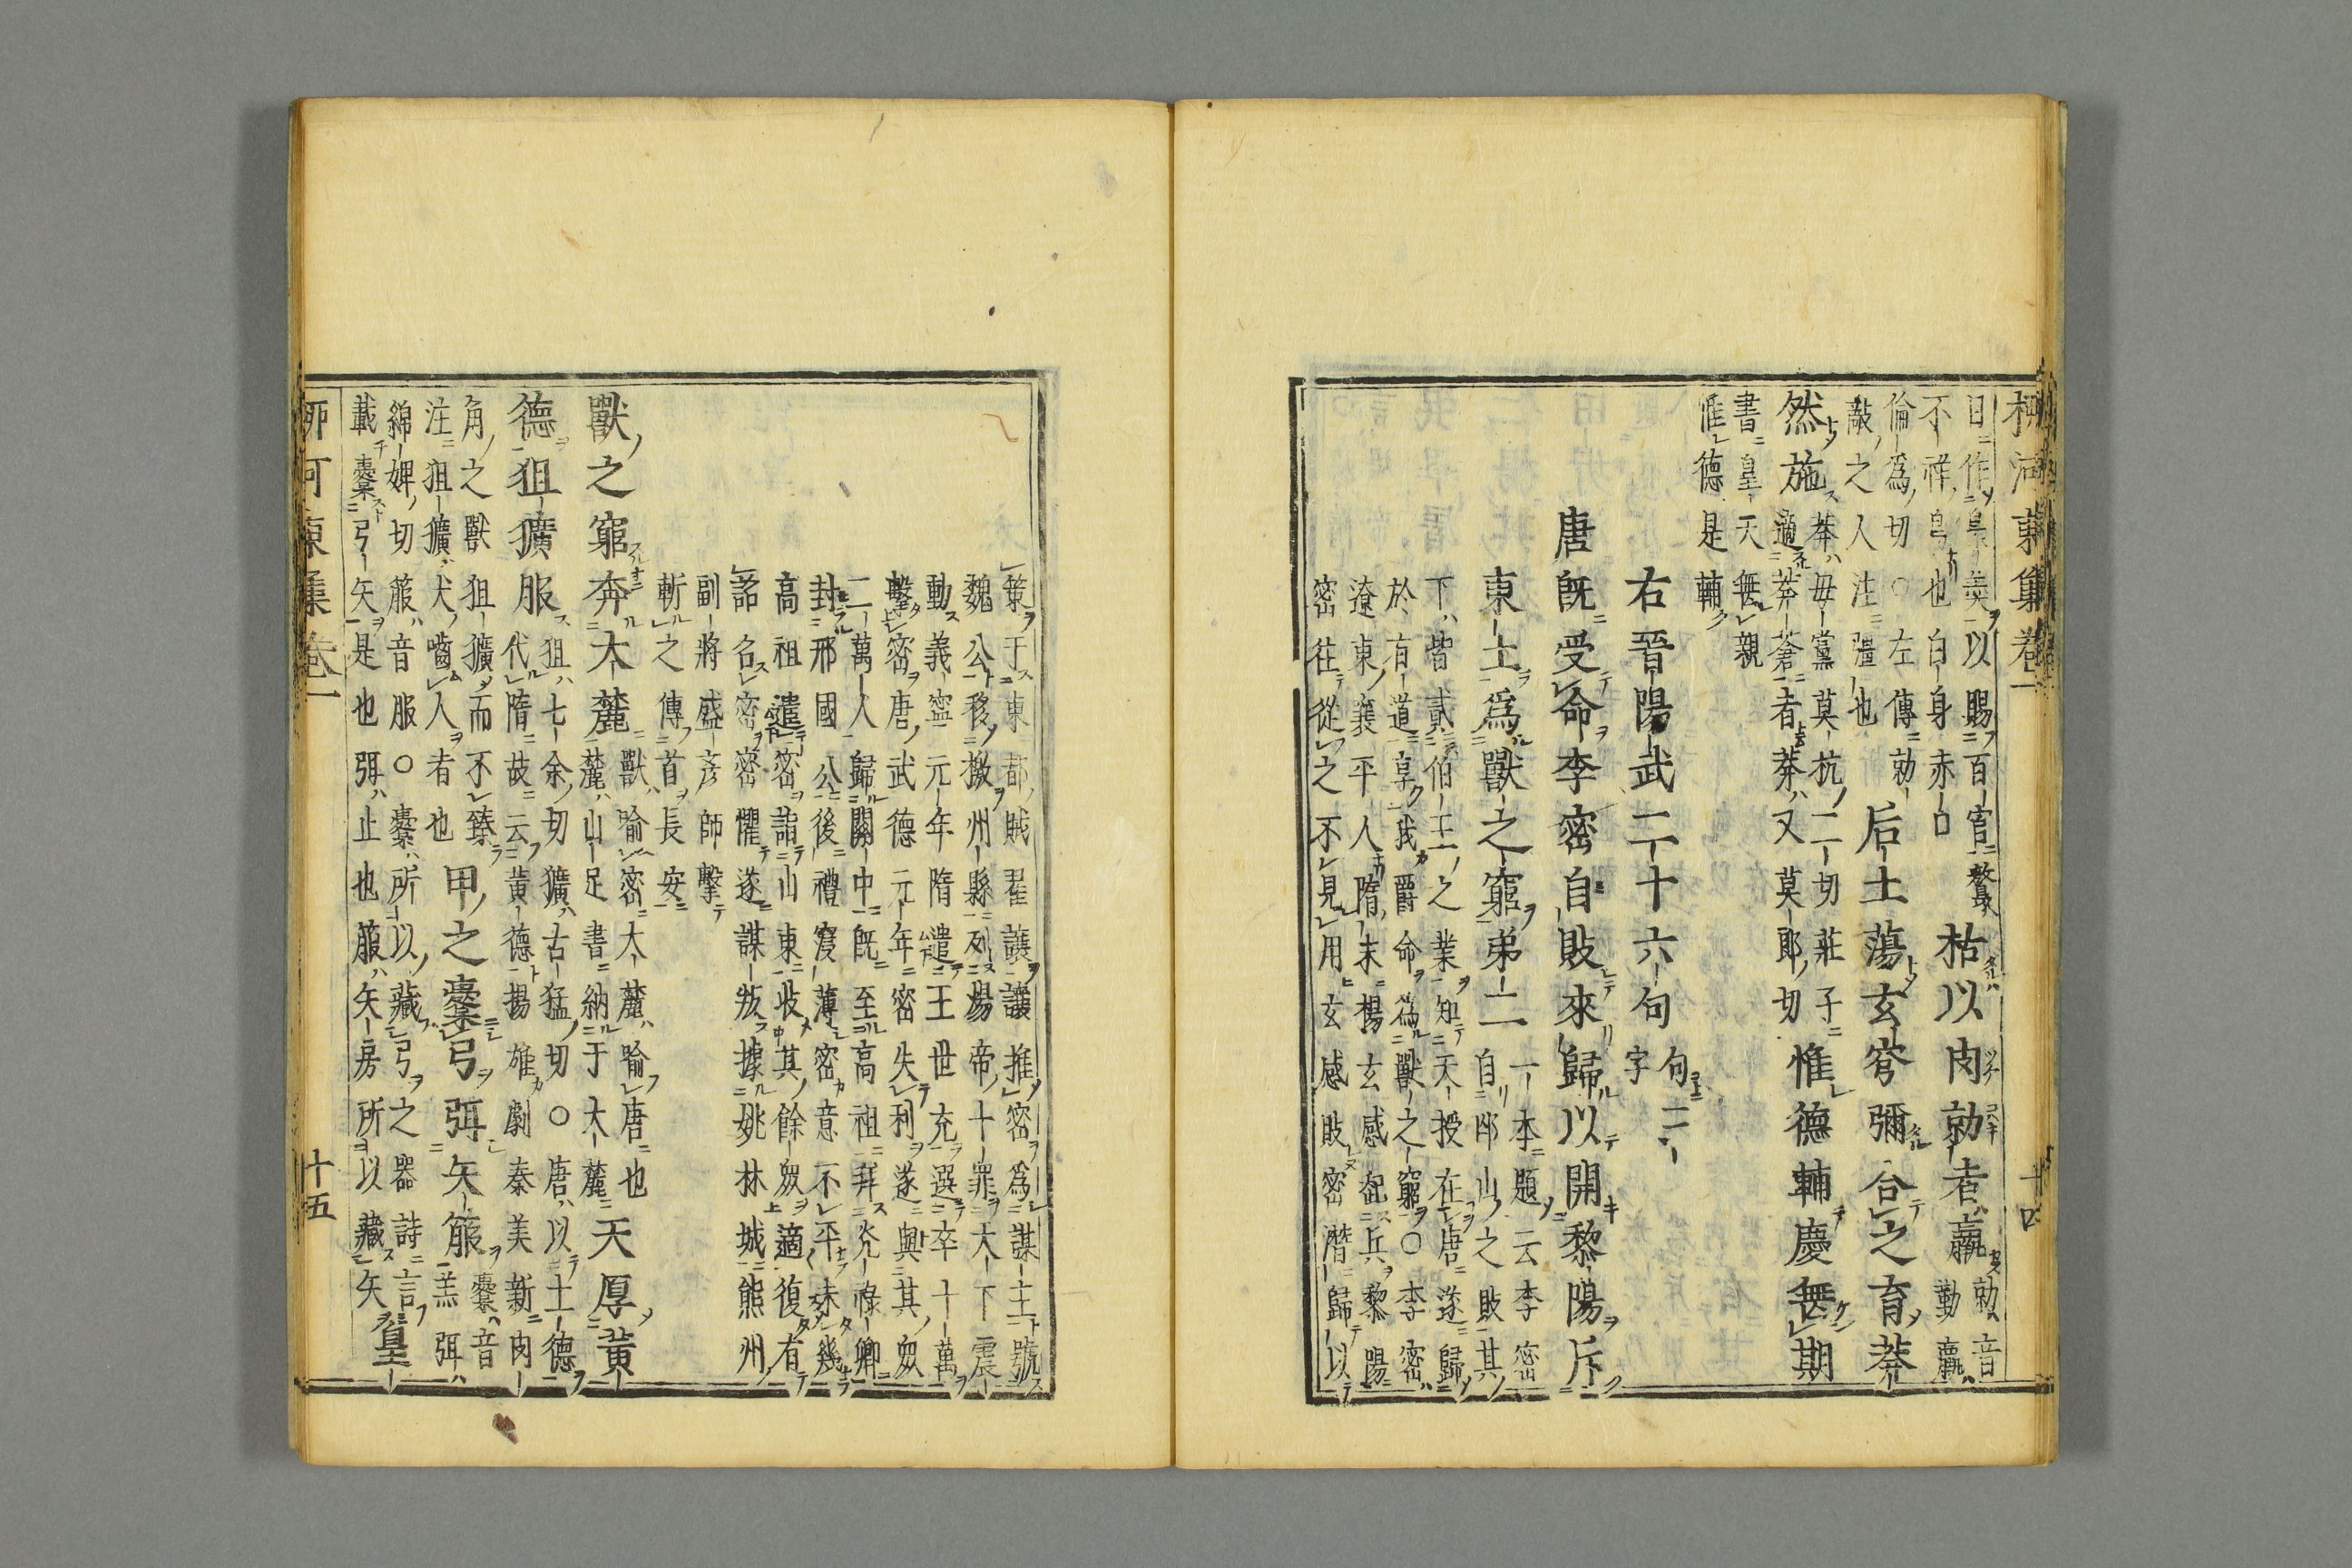 柳河東集卷一 十四
日作梟羹以賜百官
不祥梟也白身赤口
枯以肉勍者羸
勍音
勤羸
倫爲切○左傳勍
敵之人注彊也
后土蕩玄穹彌合之育莽
然施
莽毋黨莫杭二切莊子
適莽蒼者莽又莫郎切
惟德輔慶無期
書皇天無親
惟德是輔
右晉陽武二十六句
句三
字
唐既受命李密自敗來歸以開黎陽斥
東土爲獸之窮弟二
一本題云李密
自邙山之敗其
下皆貳伯王之業知天授在唐遂歸
於有道享我爵命爲獸之窮○李密
遼東襄平人隋末楊玄感起兵黎陽
密往從之不見用玄感敗密潛歸以
策于東都賊翟讓讓推密爲謀主號
魏公移檄州縣列煬帝十罪大下震
動義寧元年隋遣王世充選卒十萬
擊密唐武德元年密失利遂與其衆
二萬人歸關中既至高祖拜光祿卿
封邢國公後禮寖薄密意不平未幾
高祖遣密詣山東收其餘衆適復有
詔名密密懼遂謀叛據姚林城熊州
副將盛彦師擊
斬之傳首長安
獸之窮奔大麓
獸喻密大麓喻唐也
麓山足書納于大麓
天厚黃
德狙獷服
狙七余切獷古猛切○唐以土德
代隋故云黃德揚雄劇秦美新肉
角之獸狙獷而不臻
注狙獷犬嚙人者也
甲之櫜弓弭矢箙
櫜音
羔弭
綿婢切箙音服○櫜所以藏弓之器詩言
載櫜弓矢是也弭止也箙矢房所以藏矢
皇
柳河東集卷一 十五